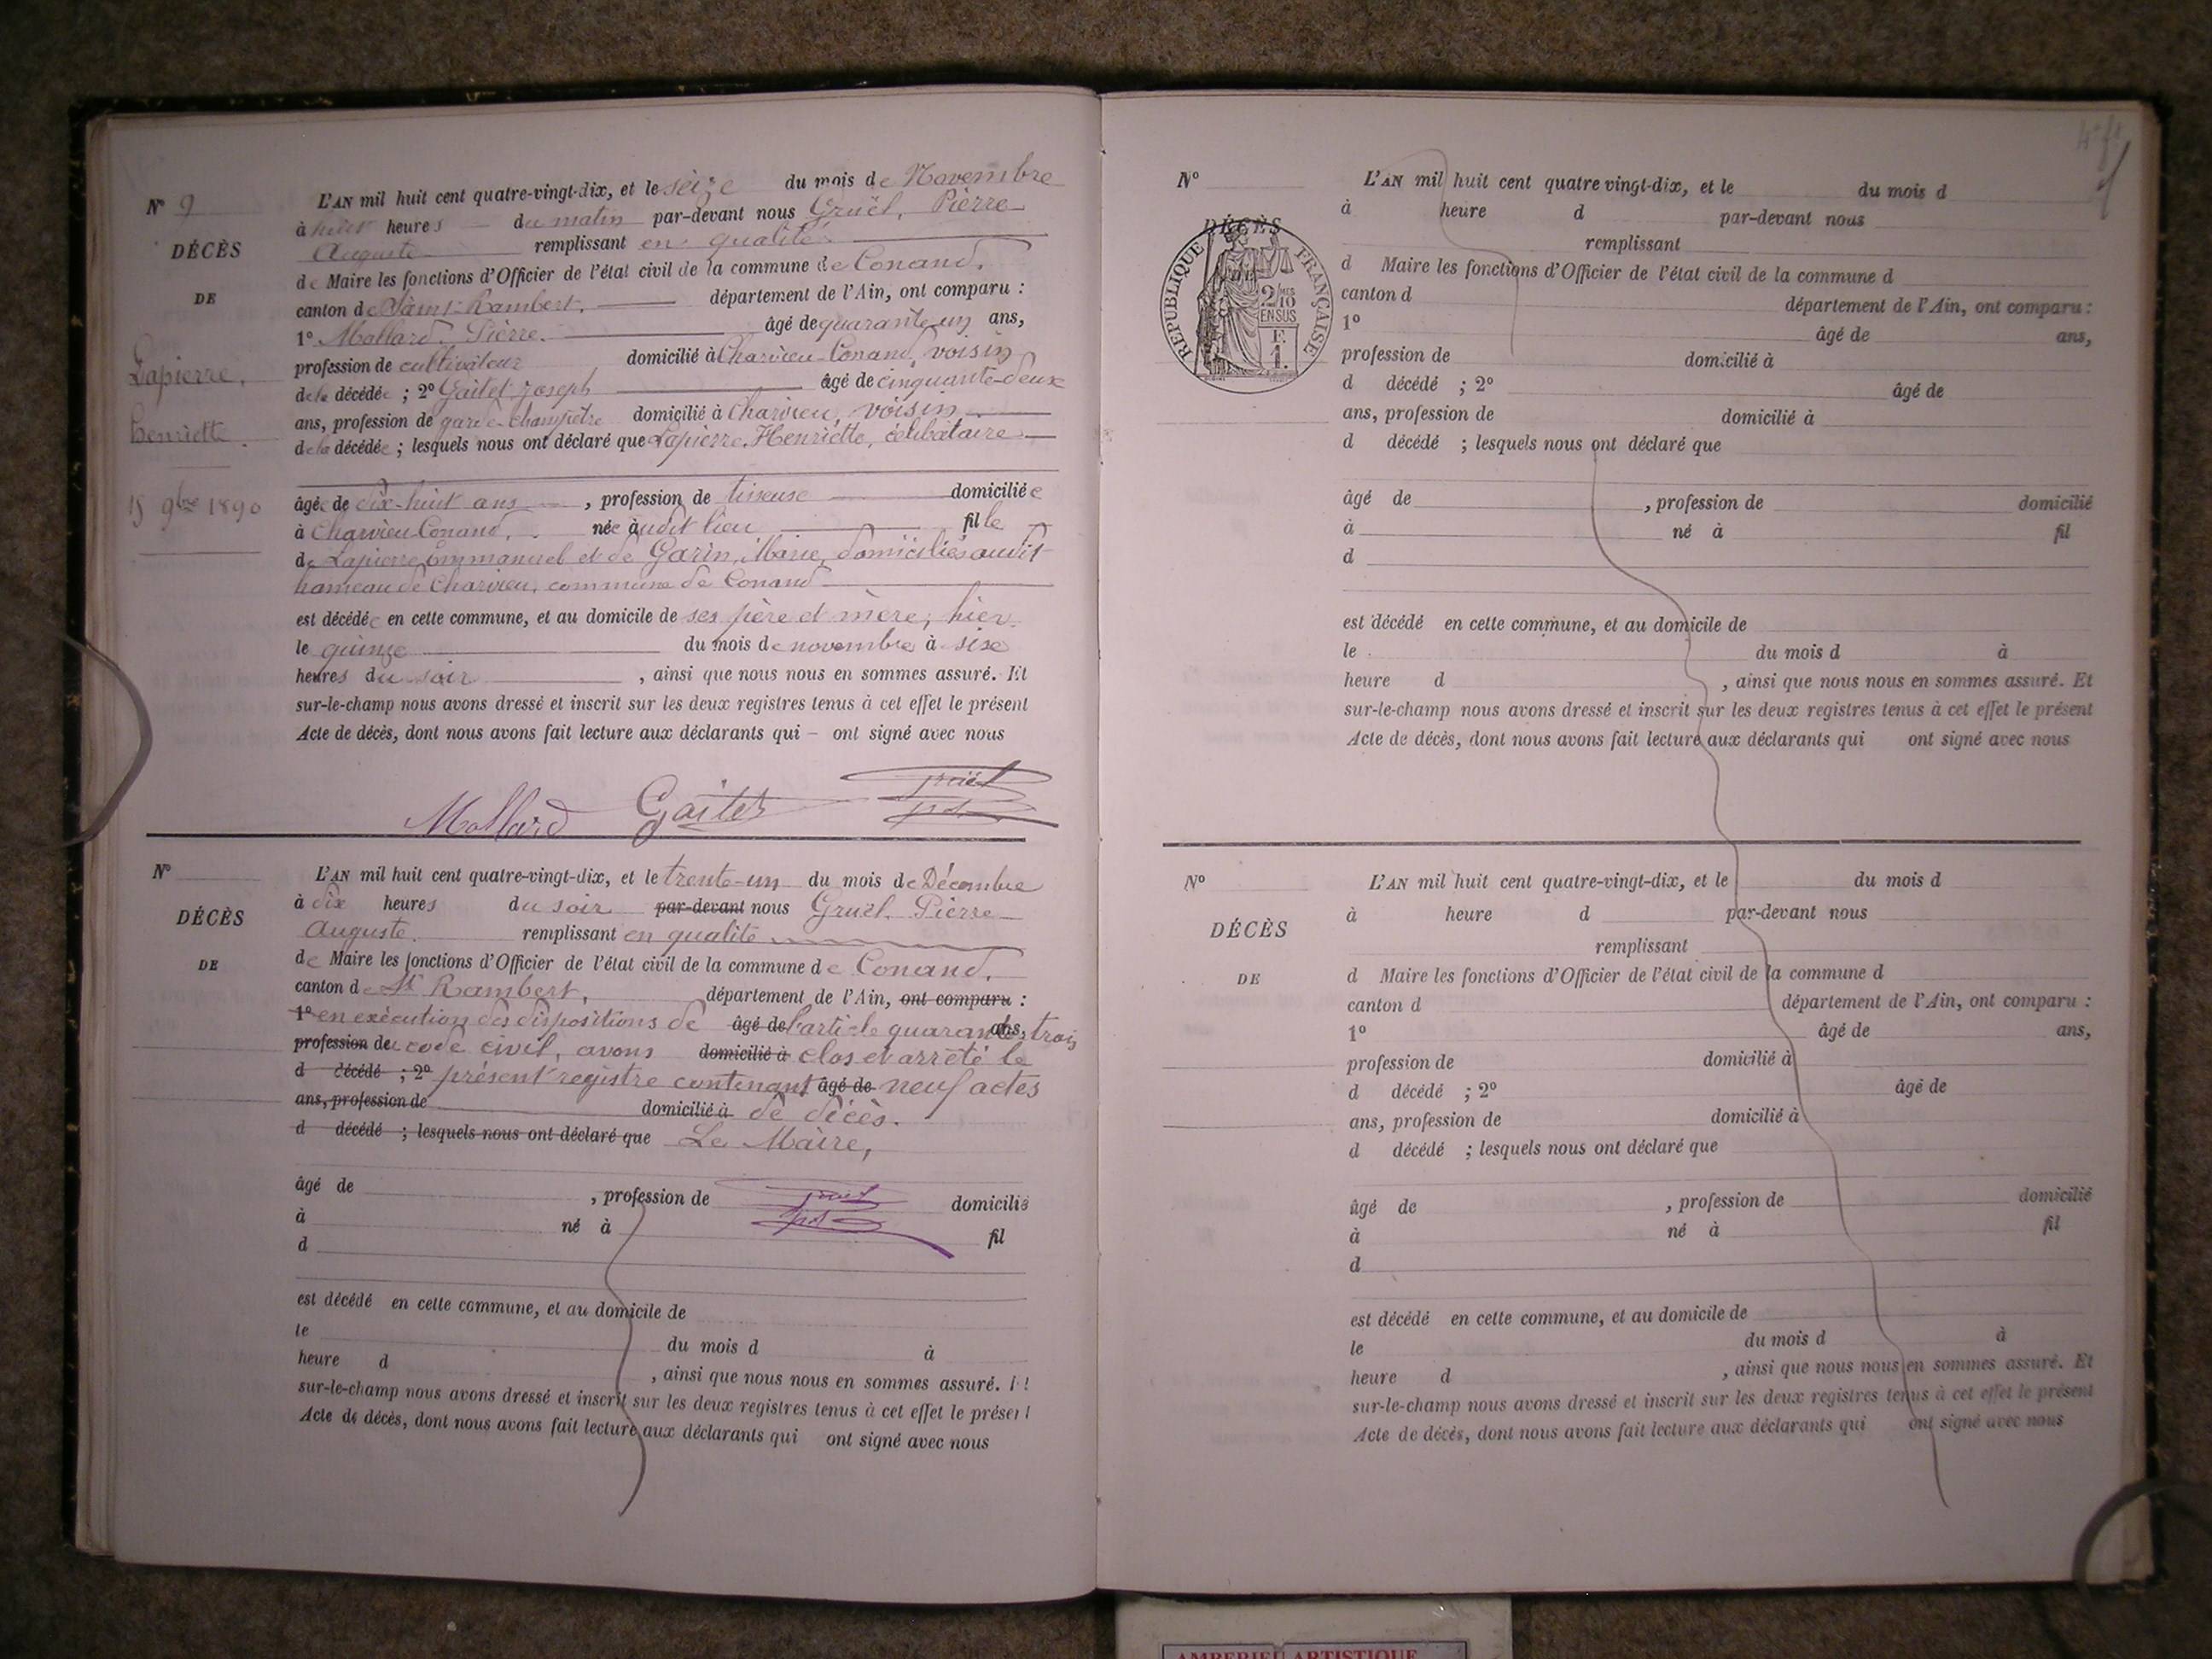 N° 9
DÉCÈS
DE
Lapierre,
Henriette
15 9bre 1890
L'AN mil huit cent quatre-vingt-dix, et le seize du mois de Novembre
à huit heures du matin par-devant nous Gruël, Pierre
Auguste remplissant en qualité
de Maire les fonctions d'Officier de l'état civil de la commune de Conand,
canton de Saint-Rambert, département de l'Ain, ont comparu :
1° Mollard, Pierre. âgé de quarante un ans,
profession de cultivateur domicilié à Charvieu-Conand, voisin
de la décédée ; 2° Gaitet Joseph âgé de cinquante-deux
ans, profession de garde-champêtre domicilié à Charvieu, voisin
de la décédée ; lesquels nous ont déclaré que Lapierre, Henriette, célibataire
âgée de dix-huit ans, profession de tisseuse domiciliée
à Charvieu-Conand, née audit lieu fille
de Lapierre Emmanuel et de Garin, Marie, domiciliés audit
hameau de Charvieu, commune de Conand
est décédée en cette commune, et au domicile de ses père et mère, hier
le quinze du mois de novembre à sixe
heures du soir, ainsi que nous nous en sommes assuré. Et
sur-le-champ nous avons dressé et inscrit sur les deux registres tenus à cet effet le présent
Acte de décès, dont nous avons fait lecture aux déclarants qui – ont signé avec nous
Mollard Gaitet Gruël
N°
DÉCÈS
DE
L'AN mil huit cent quatre-vingt-dix, et le trente-un du mois de Décembre
à dix heures du soir par-devant nous Gruël, Pierre
Auguste. remplissant en qualité
de Maire les fonctions d'Officier de l'état civil de la commune de Conand,
canton de St Rambert, département de l'Ain, ont comparu :
1° en exécution des dispositions de âgé de l'article quarante ans, trois
profession de du code civil, avons domicilié à clos et arrêté le
d décédé ; 2° présent registre contenant âgé de neuf actes
ans, profession de domicilié à de décès.
d décédé ; lesquels nous ont déclaré que Le Maire,
âgé de , profession de Gruël domicilié
à né à fil
d
est décédé en cette commune, et au domicile de
le du mois d à
heure d , ainsi que nous nous en sommes assuré. Et
sur-le-champ nous avons dressé et inscrit sur les deux registres tenus à cet effet le présent
Acte de décès, dont nous avons fait lecture aux déclarants qui ont signé avec nous
N°
DÉCÈS
RÉPUBLIQUE FRANÇAISE
2/10
EN SUS
F.
1.
L'AN mil huit cent quatre vingt-dix, et le du mois d
à heure d par-devant nous
remplissant
d Maire les fonctions d'Officier de l'état civil de la commune d
canton d département de l'Ain, ont comparu :
1° âgé de ans,
profession de domicilié à
d décédé ; 2° âgé de
ans, profession de domicilié à
d décédé ; lesquels nous ont déclaré que
âgé de , profession de domicilié
à né à fil
d
est décédé en cette commune, et au domicile de
le du mois d à
heure d , ainsi que nous nous en sommes assuré. Et
sur-le-champ nous avons dressé et inscrit sur les deux registres tenus à cet effet le présent
Acte de décès, dont nous avons fait lecture aux déclarants qui ont signé avec nous
N°
DÉCÈS
DE
L'AN mil huit cent quatre-vingt-dix, et le du mois d
à heure d par-devant nous
remplissant
d Maire les fonctions d'Officier de l'état civil de la commune d
canton d département de l'Ain, ont comparu :
1° âgé de ans,
profession de domicilié à
d décédé ; 2° âgé de
ans, profession de domicilié à
d décédé ; lesquels nous ont déclaré que
âgé de , profession de domicilié
à né à fil
d
est décédé en cette commune, et au domicile de
le du mois d à
heure d , ainsi que nous nous en sommes assuré. Et
sur-le-champ nous avons dressé et inscrit sur les deux registres tenus à cet effet le présent
Acte de décès, dont nous avons fait lecture aux déclarants qui ont signé avec nous
AMBERIEU ARTISTIQUE